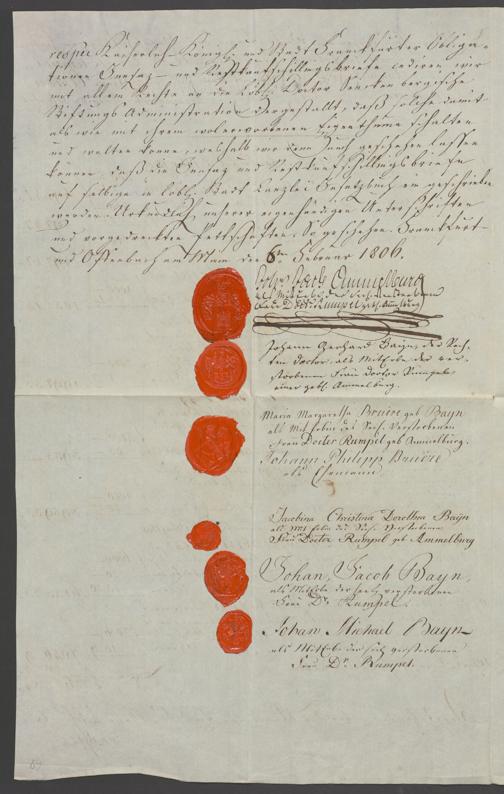 respee Kaiserlich Königl. und Stadt Franckfurter Obliga-
tionen Insaz- und Restkaufschillingsbriefe cediren wir
mit allem Rechte an die löbl. Doctor Senckenbergische
Stiftungs Administration dergestallt, daß solche damit
als wie mit ihrem wolerworbenen Eigenthume schalten
und walten könne, weshalb wir denn auch geschehen lassen
können, daß die Insaz und Restkaufschillingsbriefe
auf selbige in löbl. Stadt Canzlei Insatzbuch ein geschrieben
werden. Urkundlich unserer eigenhändigen Unterschriften
und vorgedruckten Pettschaften. So geschehen Franckfurt
und Offenbach am Main die 6ten Februar 1806.
Ammelburg
als Miterbe der Seel. verstorbenen
Frau Dr. Rumpel geb. Ammelburg
Johann Gerhard Bayn, der Rech-
ten Doctor, als Miterbe der ver-
storbenen Frau Doctor Rumpel
einer geb. Ammelburg.
Maria Margaretha Bruère geb Bayn
als Mit Erbin der Seel. Verstorbenen
Frau Docter Rumpel geb Ammelburg.
Johann Philipp Bruère
als Ehemann
Jacobina Christina Dorothea Bayn
als Mit Erbin der Seel. Verstorbenen
Frau Docter Rumpel geb Ammelburg
Johan Jacob Bayn,
als MitErbe der Seel. verstorbenen
Frau Dr. Rumpel.
Johan Michael Bayn
als MitErbe der Seel. verstorbenen
Frau Dr. Rumpel.